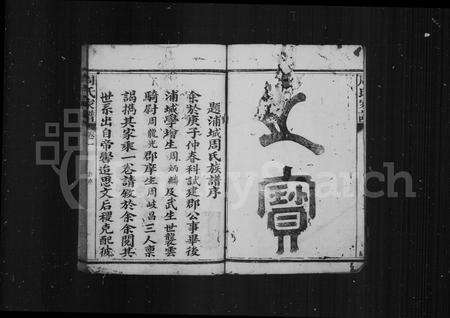 之寶
題浦城周氏族譜序
余於庚子仲春科試建郡公事畢後
浦城學增生周炳麟及武生世襲雲
騎尉周龍光郡庠生周岐昌三人稟
謁携其家乘一卷請敘於余余閱其
世系出自帝嚳追思文后稷克配彼
周氏家譜
卷一